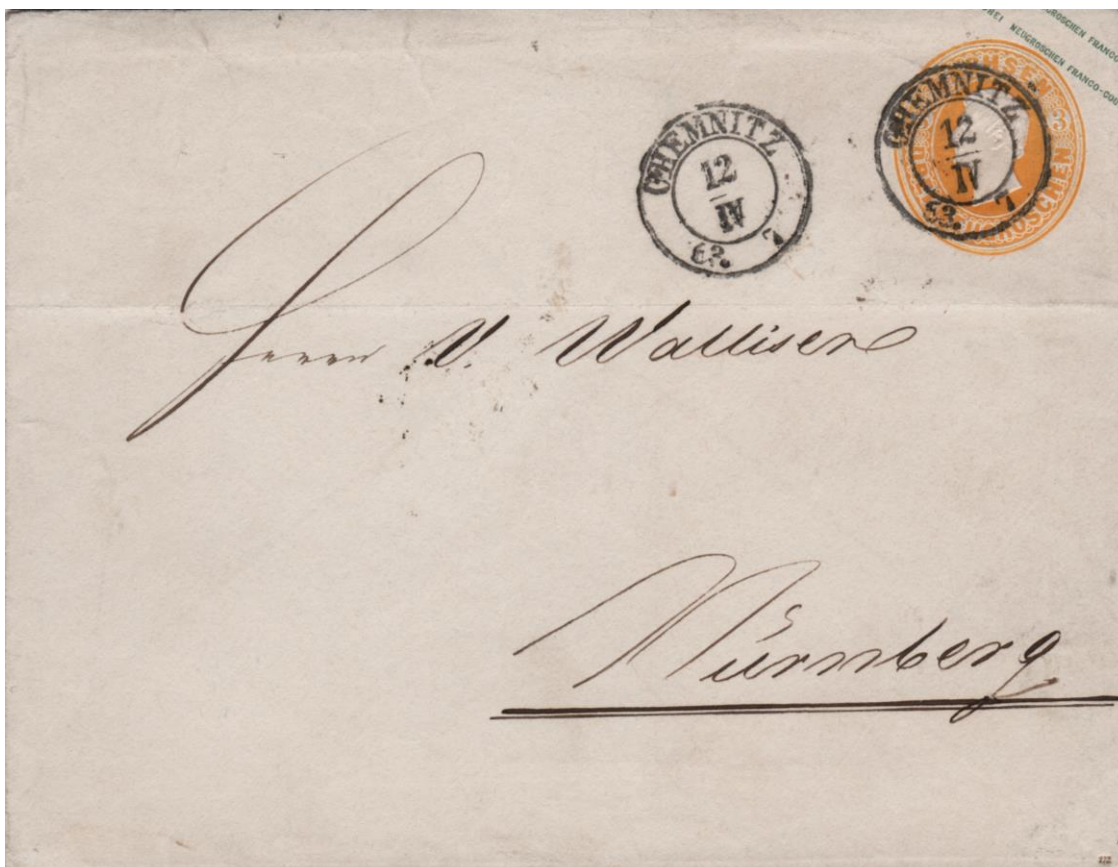 NEUGROSCHEN FRANCO
NEUGROSCHEN FRANCO-COU
CHEMNITZ
12
IV
63. 7
CHEMNITZ
12
IV
63. 7
Herrn V. Wallisen
Nürnberg